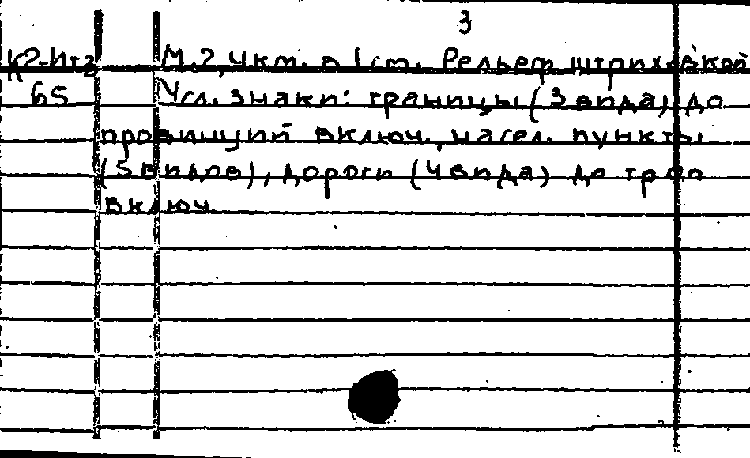 3
К2-Ит3 М.2,4км. в 1см. Рельеф штриховкой
65 Усл. знаки: границы (3 вида) до
провинций включ., насел. пункты
(5 видов), дороги (4 вида) до троп
включ.